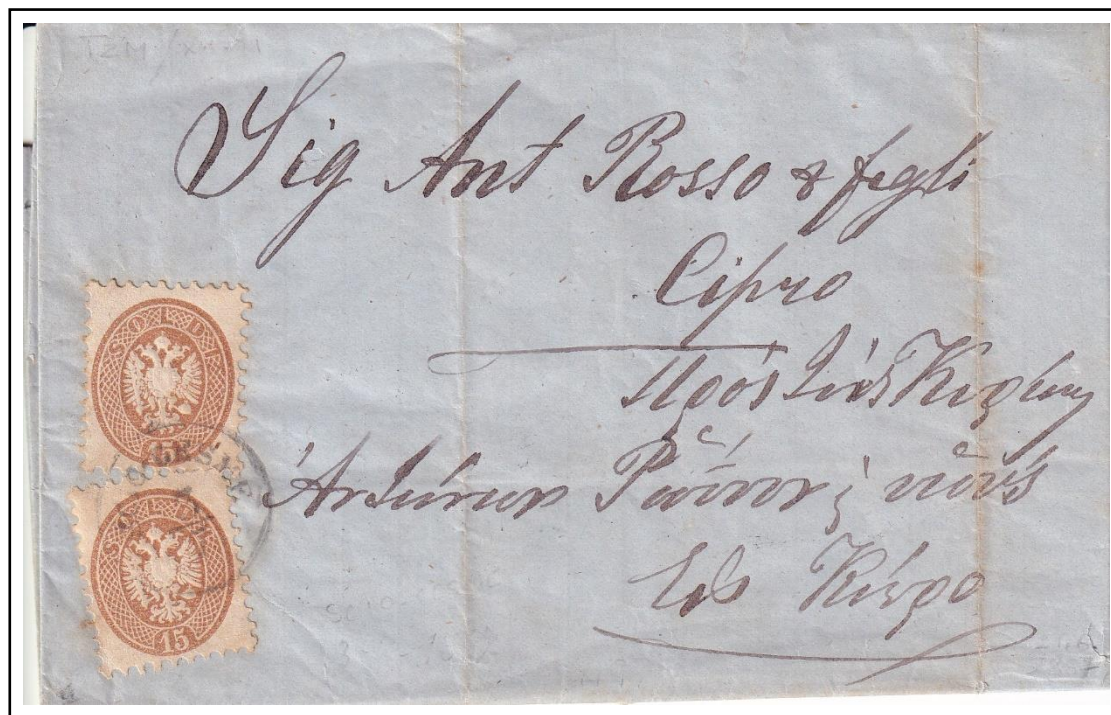 Sig Ant Rosso & figli
Cipro
Πρός τούς Κυρίους
Ἀντώνιον Ρῶσσον & υἱούς
Εἰς Κύπρο
SOLDI
15
SOLDI
15